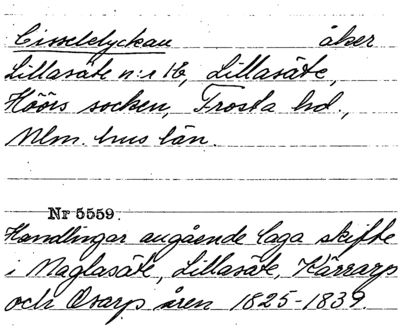 Cisseldyckan åker
Lillasäte n:r 1 E, Lillasäte,
Höörs socken, Frosta hd.,
Mlm. hus län.
Nr 5559.
Handlingar angående laga skifte
i Maglasäte, Lillasäte, Kärrarp
och Osarp åren 1825-1839.